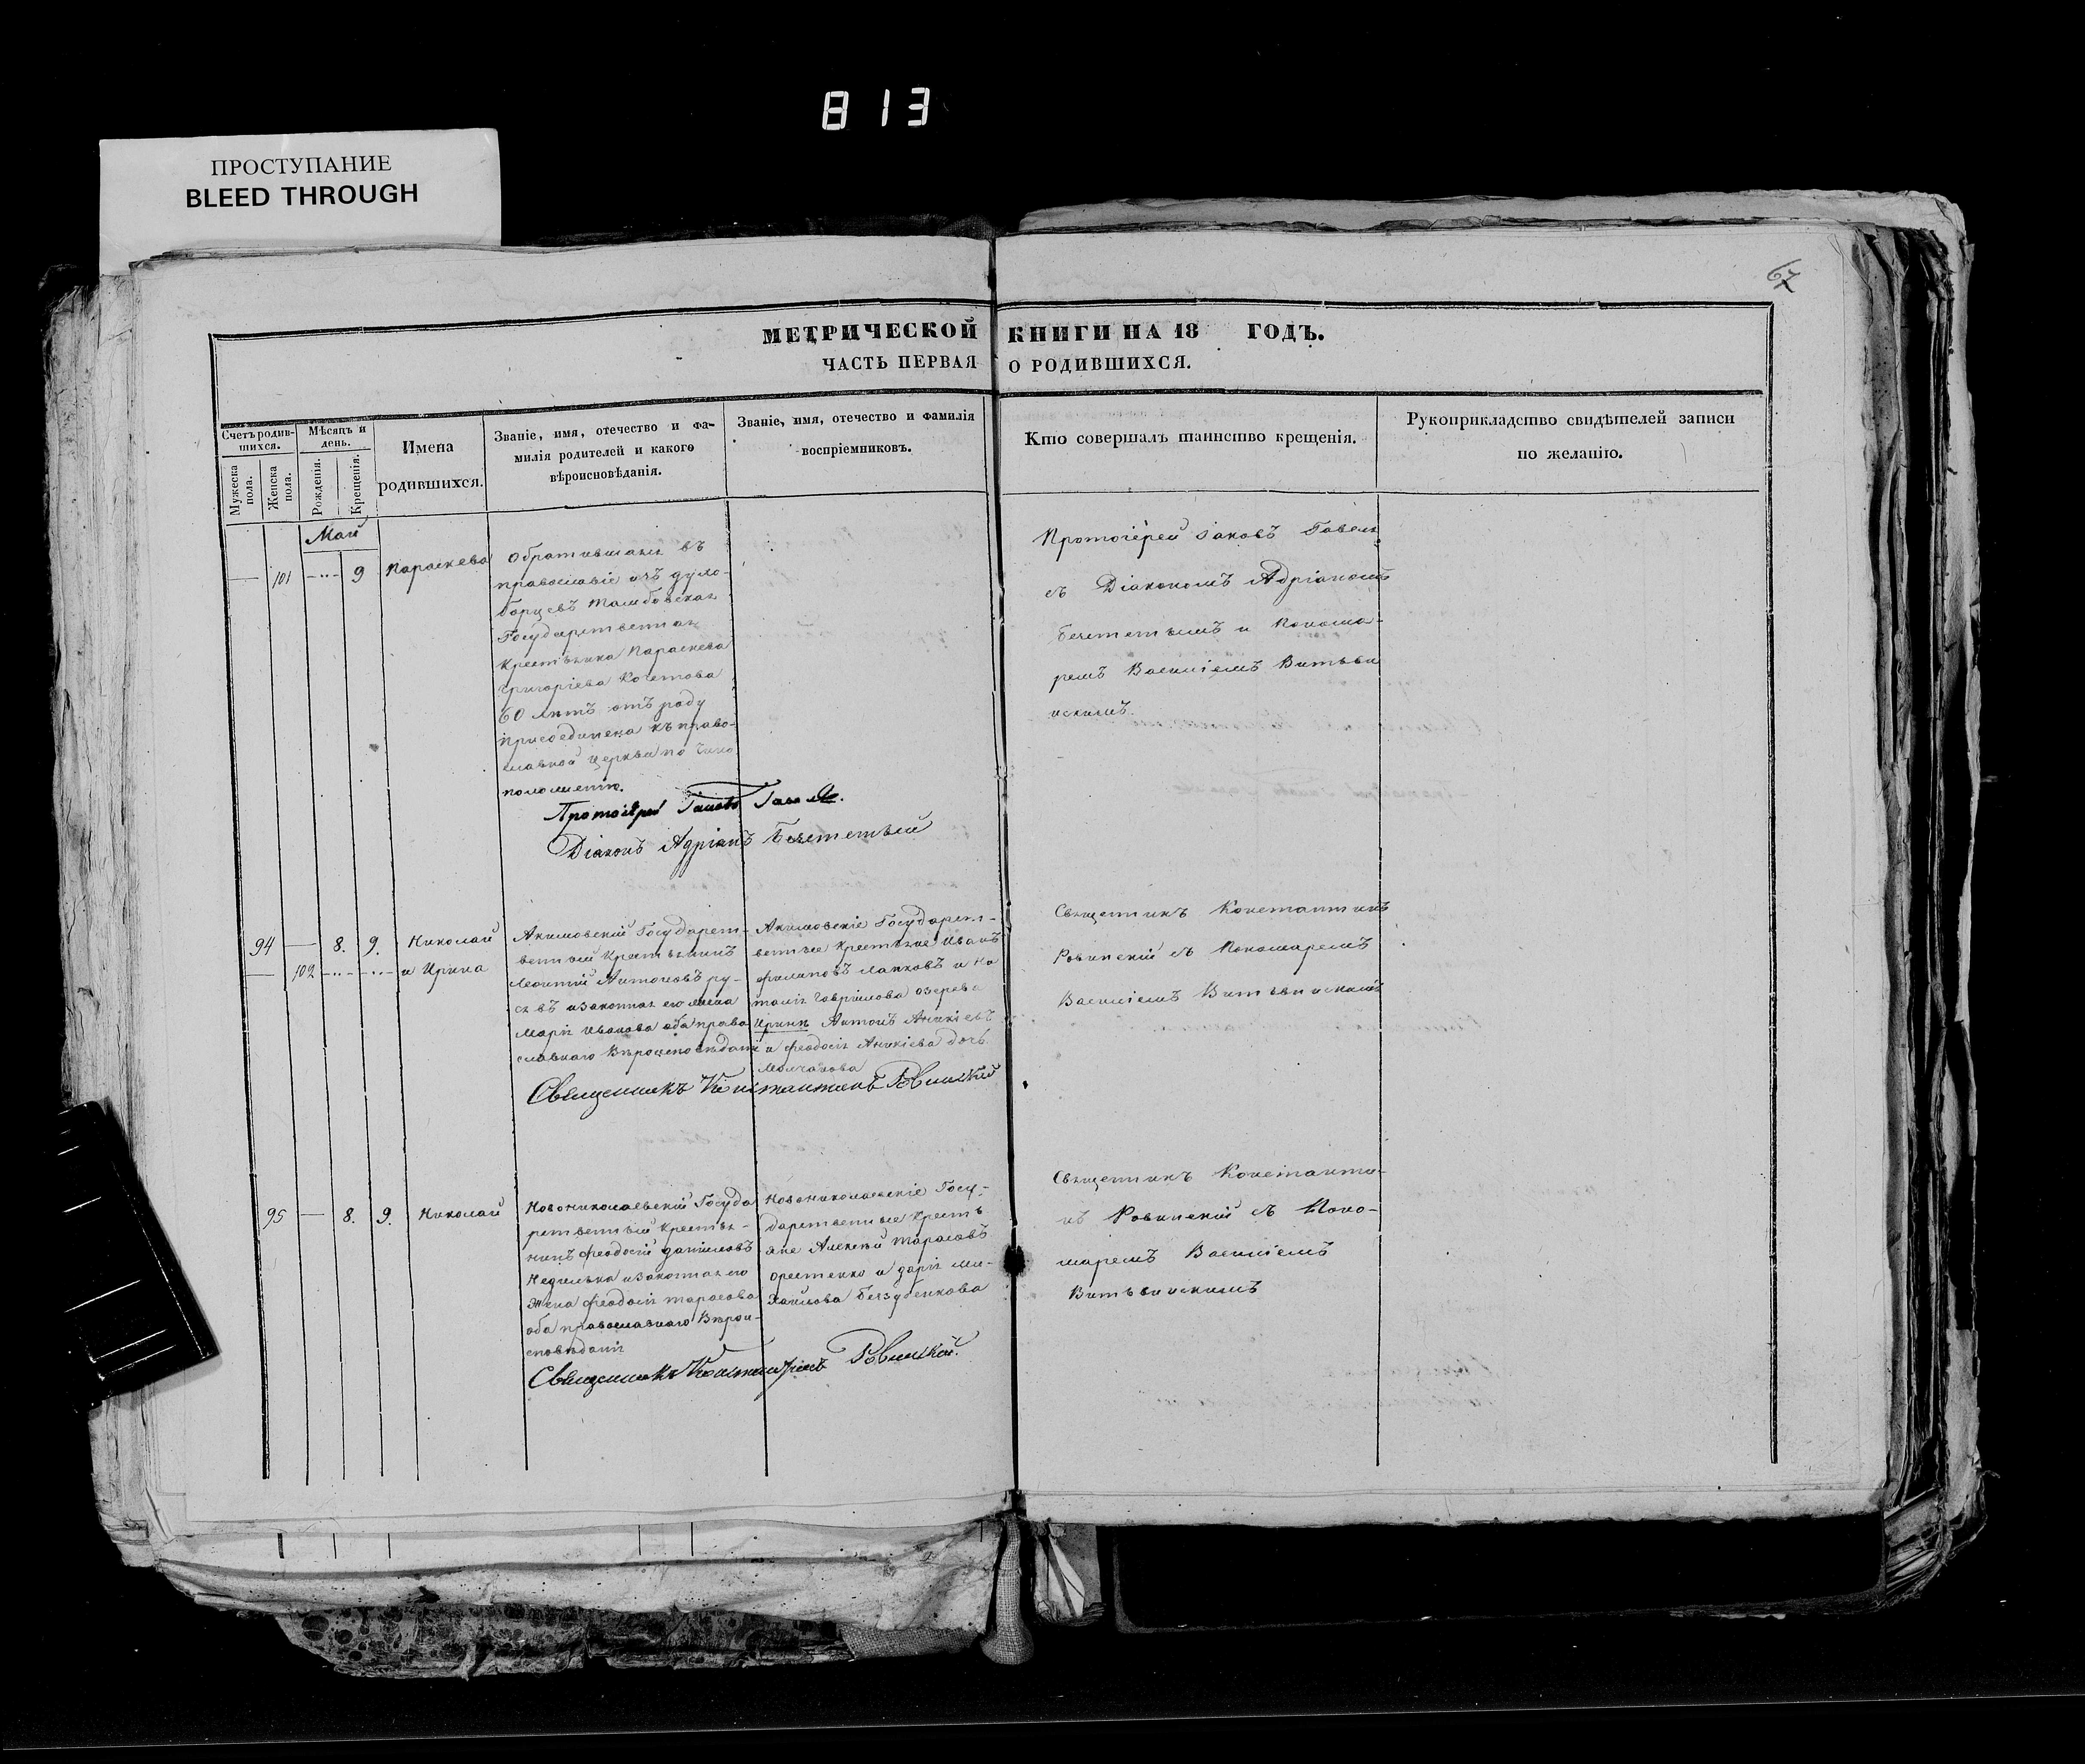 813
ПРОСТУПАНИЕ
BLEED THROUGH
67
МЕТРИЧЕСКОЙ КНИГИ НА 18 ГОДЪ.
ЧАСТЬ ПЕРВАЯ О РОДИВШИХСЯ.
Счетъ родив-
шихся.
Мужеска
пола.
Женска
пола.
Мѣсяцъ и
день.
Рожденія.
Крещенія.
Имена
родившихся.
Званіе, имя, отечество и фа-
милія родителей и какого
вѣроисповѣданія.
Званіе, имя, отечество и фамилія
воспріемниковъ.
Кто совершалъ таинство крещенія.
Рукоприкладство свидѣтелей записи
по желанію.
Май
— 101 —··— 9 Параскева
Обратившаяся въ
православіе изъ духо-
борцевъ Тамбовская
Государственная
Крестьянка Параскева
Григоріева Кочетова
60 лѣтъ отъ роду
присоединена къ право-
славной церкви по чино
положенію.
Протоіерей Іаковъ
Діаконъ Адріанъ
Протоіерей Іаковъ
съ Діакономъ Адріаномъ
и Понома-
ремъ Василіемъ
94 — 8. 9. Николай
— 102 —··— —··— и Ирина
Акимовскій Государст-
венный Крестьянинъ
Леонтій Антоновъ ру-
се въ и законная его жена
Марія Иванова оба право
славнаго Вѣроисповѣданія
Акимовскіе Государст-
венные Крестьяне Иванъ
Филиповъ и На
талія Гаврилова Озерева
Иринѣ Антонъ Аникіевъ
и Феодосія Аникіева дочь
Молчанова
Священникъ Константинъ Ровинскій
Священникъ Константинъ
Ровинскій съ Пономаремъ
Василіемъ
95 — 8. 9. Николай
Новониколаевскій Госуда
рственный Крестья-
нинъ Феодосій Даниловъ
Недилька и законная его
Жена Феодосія Тарасова
оба православнаго Вѣрои-
сповѣданія
Новониколаевскіе Госу-
дарственные Кресть
яне Алексѣй Тарасовъ
и Дарія Ми-
хайлова Беззубенкова
Священникъ Константинъ Ровинскій.
Священникъ Константи-
нъ Ровинскій съ Поно-
маремъ Василіемъ